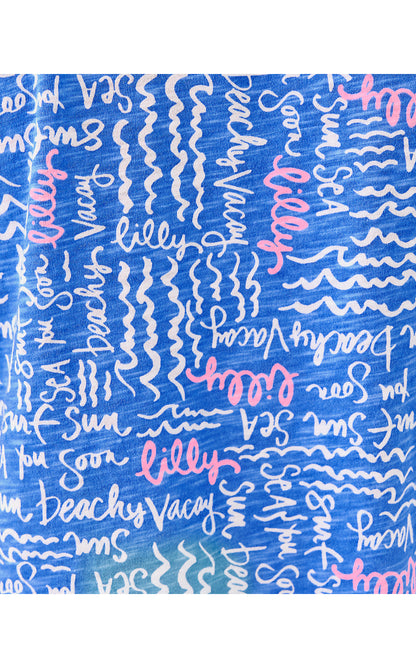 SEA
Beachy Vacay
Soon
Sun SEA
lilly
You Soon
Sun
lilly
Vacay
lilly
lilly
SEA You Soon
Beachy
Beachy Vacay
lilly
Soon
Surf Sun
SEA
Sun
Surf
You Soon
lilly
Sun Beachy Vacay
Sun Beachy
SEA You Soon
Surf Sun
Vacay
lilly
Sun
SEA
lilly